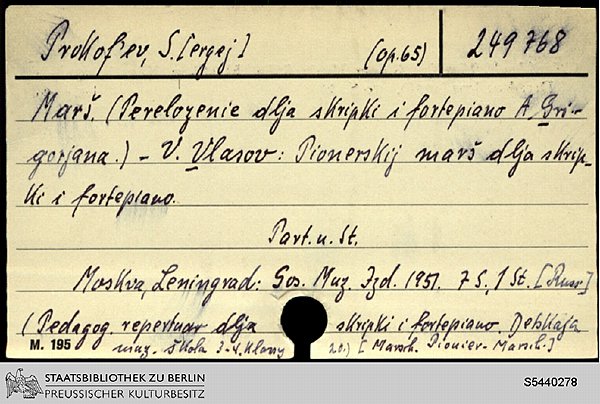 Prokof'ev, S.[ergej] (Op.65) 249768
Marš. (Pereloženie dlja skripki i fortepiano A. Gri-
gorjana.) - V. Vlasov: Pionerskij marš dlja skrip-
ki i fortepiano.
Part. u. St.
Moskva, Leningrad: Gos. Muz. Izd. 1951. 7 S., 1 St. [Russ.]
(Pedagog. repertuar dlja skripki i fortepiano. Detskaja
M. 195 muz. škola 3-4. klassy [Marsch. Pionier-Marsch.]
STAATSBIBLIOTHEK ZU BERLIN
PREUSSISCHER KULTURBESITZ
S5440278